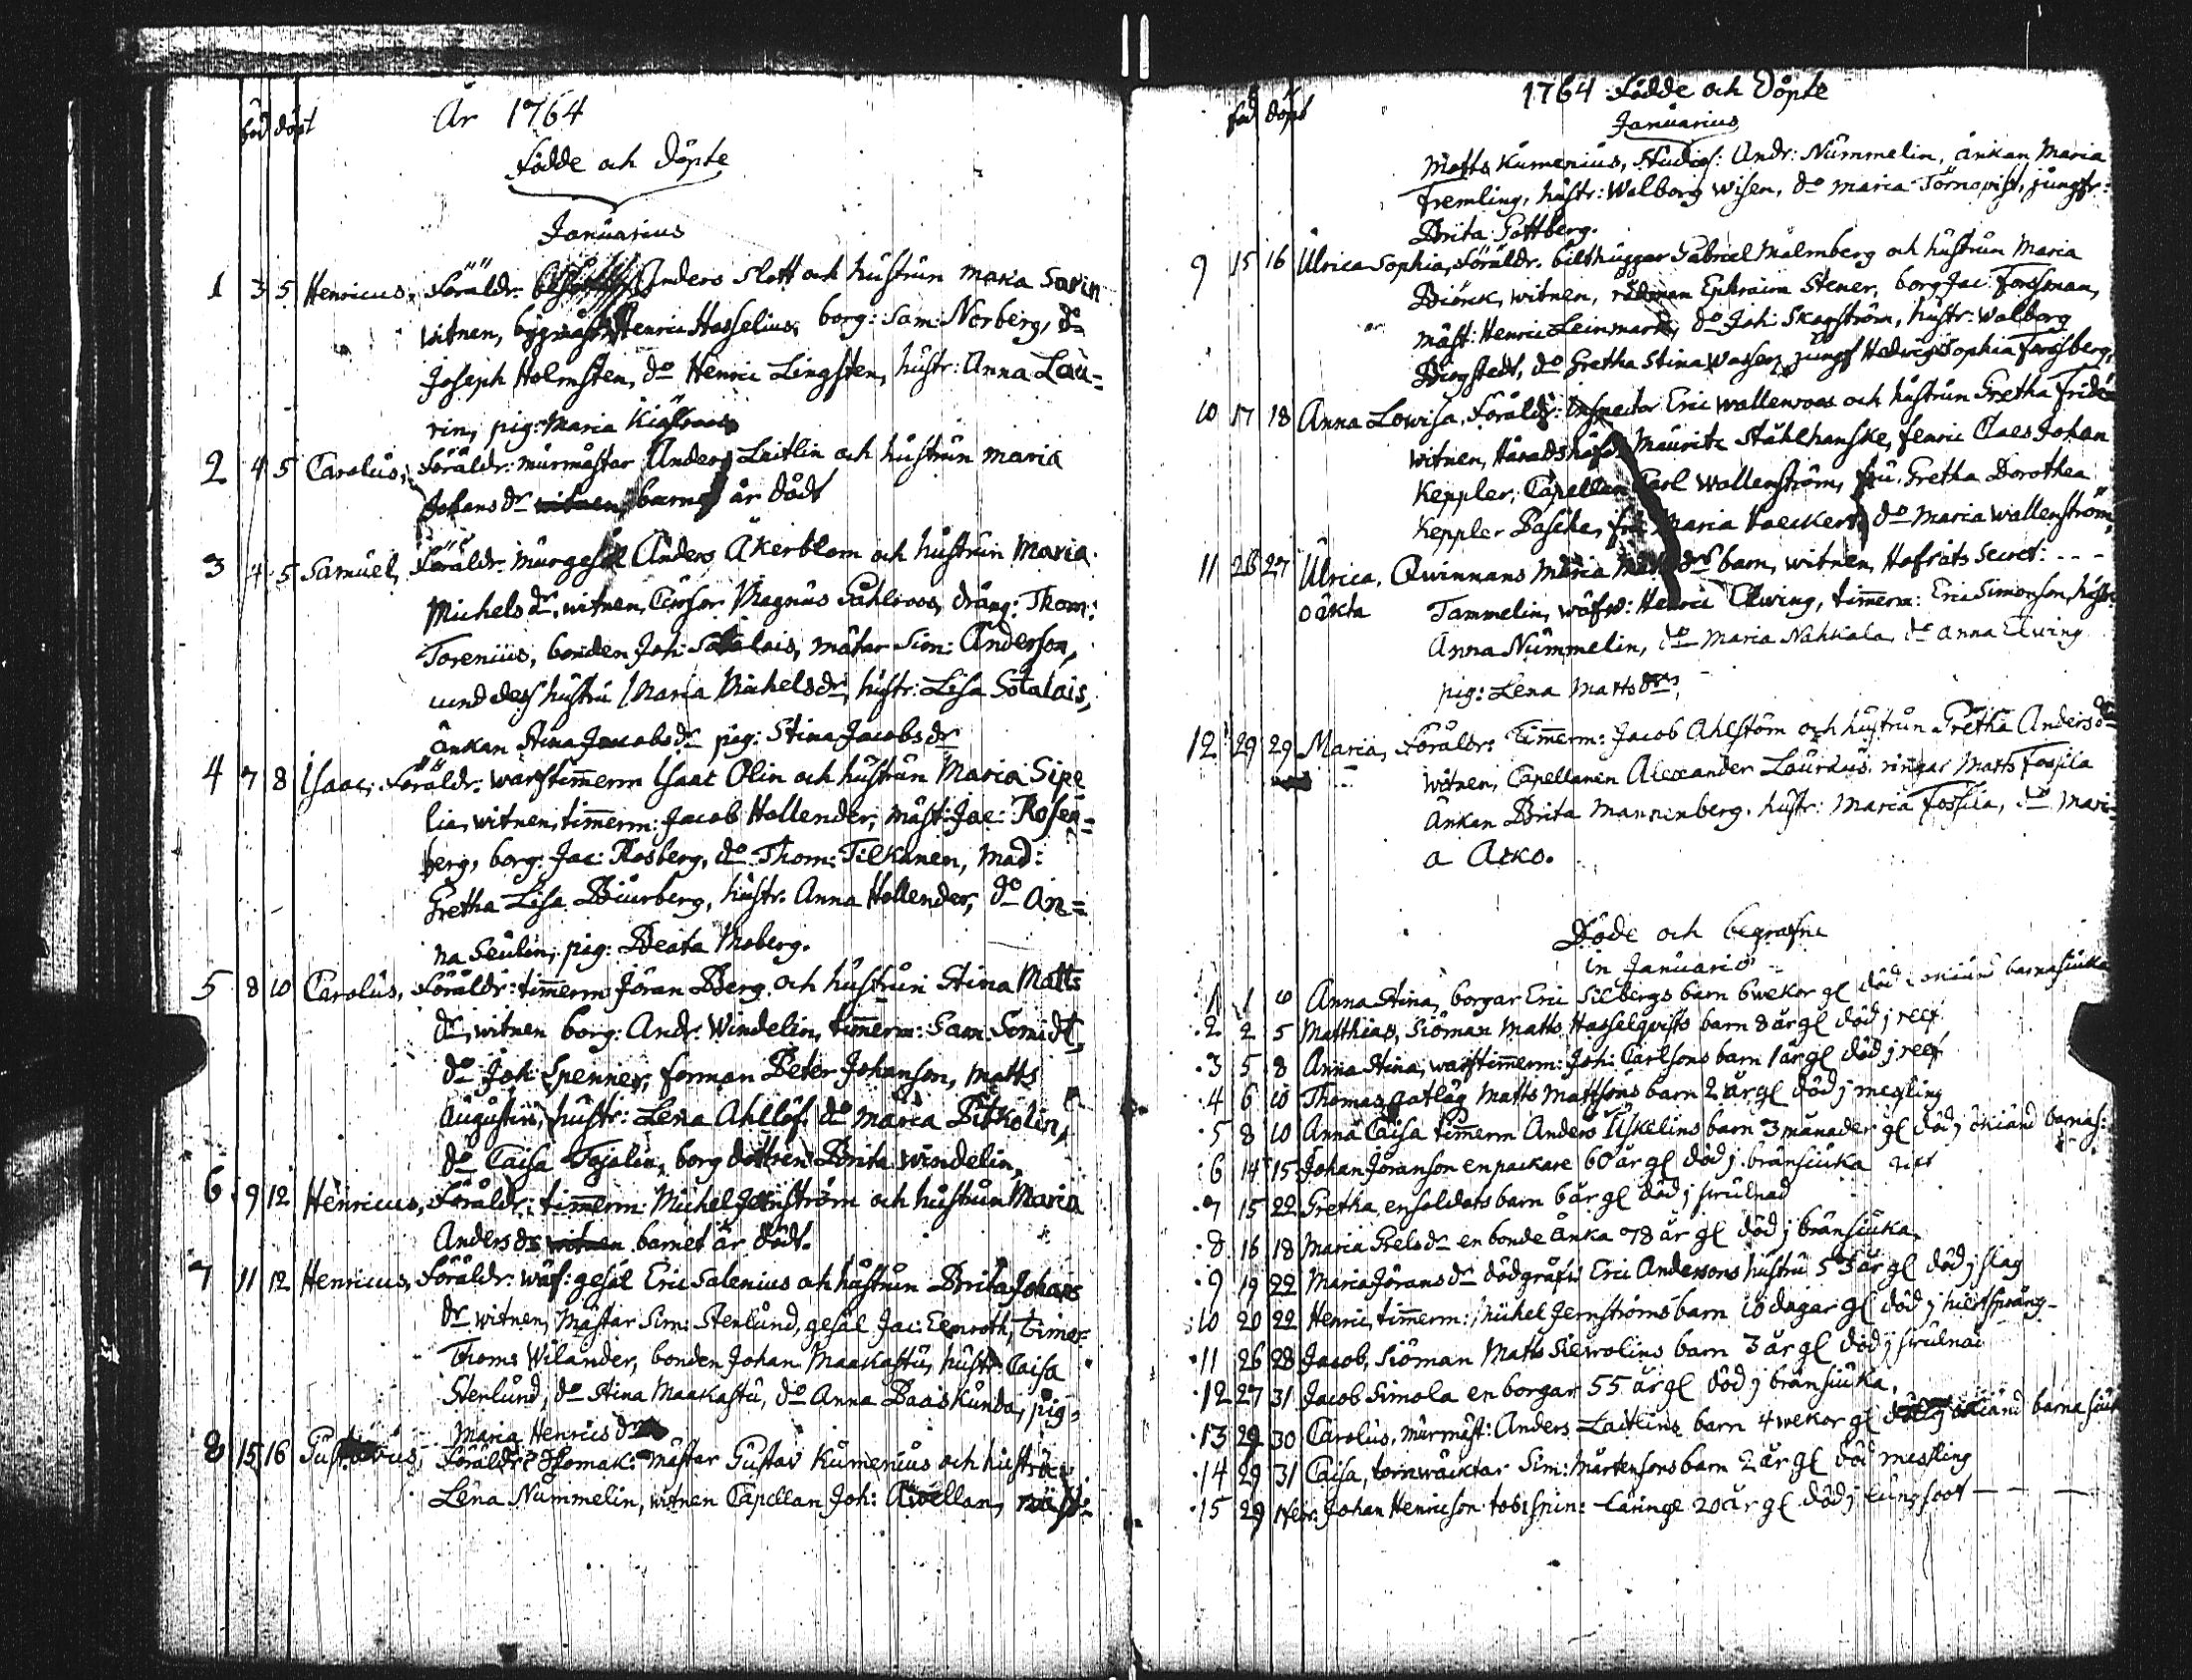 född döpt
År 1764
Födde och Döpte
Januarius
1 3 5 Henricus, Föräldr. Anders Slott och hustrun Maria Sarin
witnen, Henric Hasselius, borg: Sam: Norberg, do
Joseph Holmsten, do Henric Lingsten, hustr: Anna Lau=
rin, pig: Maria
2 4 5 Carolus, Föräldr: murmästar Anders Laitlin och hustrun Maria
Johans dr witnen barnet är dödt
3 4 5 Samuel, Föräldr. murgesäl Anders Åkerblom och hustrun Maria
Michels dr, witnen, Magnus Påhlroos, dräng: Thom:
Torenius, bonden Joh: Sotalais, mätar Sim: Anderson,
und dess hustru Maria Michelsdr, hustr: Lisa Sotalais,
änkan Stina Jacobsdr pig: Stina Jacobsdr
4 7 8 Isaac, Föräldr. warfstimerm Isaac Olin och hustrun Maria Sipe
lia, witnen, timerm: Jacob Hollender, mäst: Jac: Rosen=
berg, borg: Jac: Rosberg, do Thom: Tilkanen, mad:
Gretha Lisa Biurberg, hustr. Anna Hollender, do An=
na Seulin, pig: Beata Moberg.
5 8 10 Carolus, Föräldr: timerm Jöran Berg och hustrun Stina Matts
dr, witnen borg: Andr. Windelin, timerm: Sam: Smidt,
do Joh: Spenner, forman Peter Johanson, Matts
Augustin, hustr: Lena Ahllöf, do Maria Pitkolin,
do Caisa Tojalin, borg dottren Brita Windelin,
6 9 12 Henricus, Föräldr: timerm: Michel Jernström och hustrun Maria
Andersdr witnen barnet är dödt.
7 11 12 Henricus, Föräldr: wäf: gesäl Eric Salenius och hustrun Brita Johans
dr witnen, Mästar Sim: Stenlund, gesäl Jac: Eenroth, Timer:
Thoms Wilander, bonden Johan Maakastu, hustr: Caisa
Stenlund, do Stina Maakastu, do Anna Paaskunda, pig:
Maria Henricsdr
8 15 16 Gustavus, Föräldr: mästar Gustav Kumenius och hustru
Lena Nummelin, witnen Capellan Joh: Avellan, mäst:
född döpt
1764 Födde och Döpte
Januarius
Matts Kumenius, Studios: Andr: Nummelin, änkan Maria
Fremling, hustr: Walborg Wisen, do Maria Törnqvist, jungfr:
Brita Gottberg.
9 15 16 Ulrica Sophia, Föräldr. bilthuggar Gabriel Malmberg och hustrun Maria
Biörck, witnen, rådman Ephraim Stener, borg Jac: Forssman,
mäst: Henric Leinmark, do Joh: Skogström, hustr: Walborg
Bergstedt, do Gretha Stina jungf Hedwig Sophia Forsberg,
10 17 18 Anna Lowisa, Föräldr: Inspector Eric Wallenroos och hustrun Gretha Fridén
witnen, Häradshöfd Mauritz Stålhanske, Claes Johan
Keppler, Capellan Carl Wallenström, fru Gretha Dorothea
Keppler Pasche, fru Maria do Maria Wallenström,
11 26 27 Ulrica, Qwinnans Maria dr barn, witnen, Hofräts Secret: - - -
oäkta Tammelin, wäfw: Henric Elwing, timerm: Eric Simonson, hustr:
Anna Nummelin, do Maria Nahkiala, do Anna Elwing
pig: Lena Mattsdr,
12 29 29 Maria, Föräldr: Timerm: Jacob Ahlström och hustrun Gretha Anders dr
witnen, Capellanen Alexander Lauræus, ringar Matts Fossila
änkan Brita Mannenberg, hustr: Maria Fossila, do Mari
a Arko.
Döde och begrafne
in Januario
1 1 6 Anna Stina, borgar Eric Silbergs barn 6 wekor gl död okiänd barnasiuka
2 2 5 Matthias, Siöman Matts Hasselqvists barn 8 år gl död j reef
3 5 8 Anna Stina, warfstimerm: Joh: Carlsons barn 1 år gl död j reef
4 6 10 Thomas, Matts Mattsons barn 2 år gl död j messling
5 8 10 Anna Caisa timerm Anders Uskelins barn 3 månader gl död j okiänd barnas:
6 14 15 Johan Joranson en packare 60 år gl död j bränsiuka
7 15 22 Gretha, en soldats barn 6 år gl död j strulnad
8 16 18 Maria Grelsdr en bonde änka 78 år gl död j bränsiuka
9 19 22 Maria Jöransdr dödgräfw: Eric Andersons hustru 53 år gl död j slag
10 20 22 Henric, timerm: Michel Jernströms barn 10 dagar gl död j hiertspräng
11 26 28 Jacob, Siöman Matts Silwolins barn 3 år gl död j strulnad
12 27 31 Jacob Simola en borgar 55 år gl död j bränsiuka,
13 29 30 Carolus, murmäst: Anders Laitlins barn 4 wekor gl död j okiänd barna siuk
14 29 31 Caisa, tornwäcktar Sim: Mårtensons barn 2 år gl död messling
15 29 1 Febr: Johan Henricson tobspin: läringe 20 år gl död j lungsoot